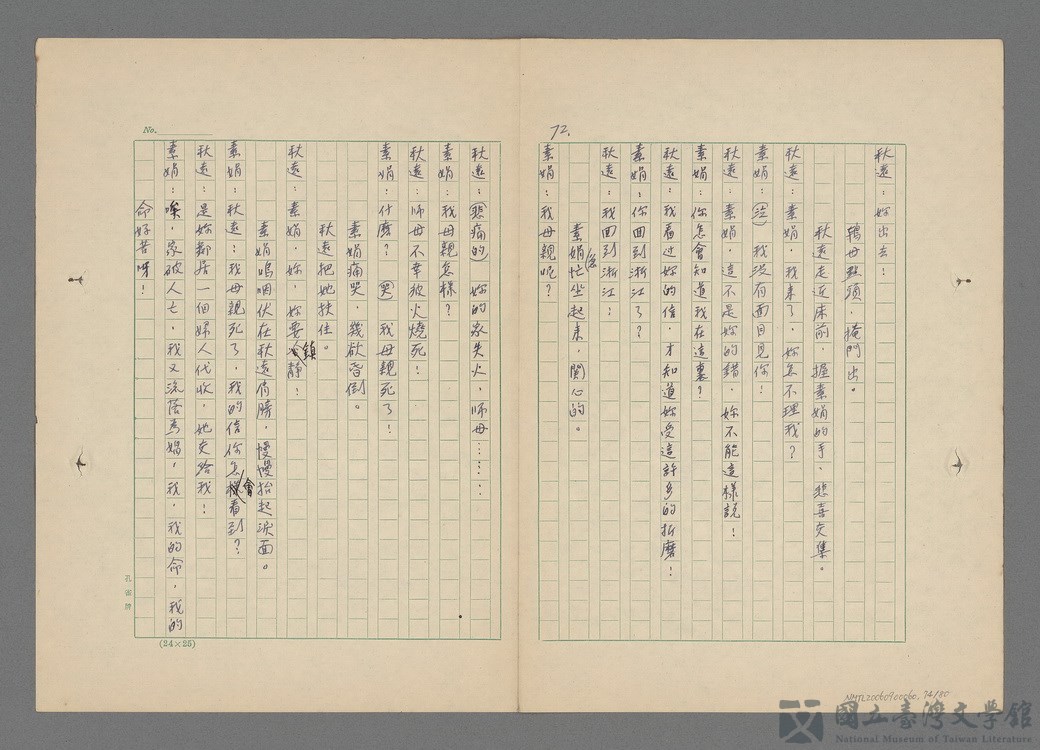 72.
秋遠：妳出去！
鴇母點頭，掩門出。
秋遠走近床前，握素娟的手，悲喜交集。
秋遠：素娟，我来了，妳怎不理我？
素娟：(泣) 我没有面目見你！
秋遠：素娟，這不是妳的錯，妳不能這樣説！
素娟：你怎會知道我在這裏？
秋遠：我看过妳的信，才知道妳受這許多的折磨！
素娟：你回到浙江了？
秋遠：我回到浙江！
素娟忙坐起来，関心的。
素娟：我母親呢？
No.
秋遠：(悲痛的) 妳的家失火，师母……
素娟：我母親怎樣？
秋遠：师母不幸被火燒死！
素娟：什麼？ (哭) 我母親死了！
素娟痛哭，幾欲昏倒。
秋遠把她扶住。
秋遠：素娟，妳，妳要鎮静！
素娟嗚咽伏在秋遠肩膀，慢慢抬起淚面。
素娟：秋遠！我母親死了，我的信你怎會看到？
秋遠：是妳鄰居一個婦人代收，她交给我！
素娟：唉，家破人亡，我又流落為娼，我，我的命，我的
命好苦呀！
孔雀牌
(24×25)
NMTL20060900060. 74/80
國立臺灣文學館
National Museum of Taiwan Literature